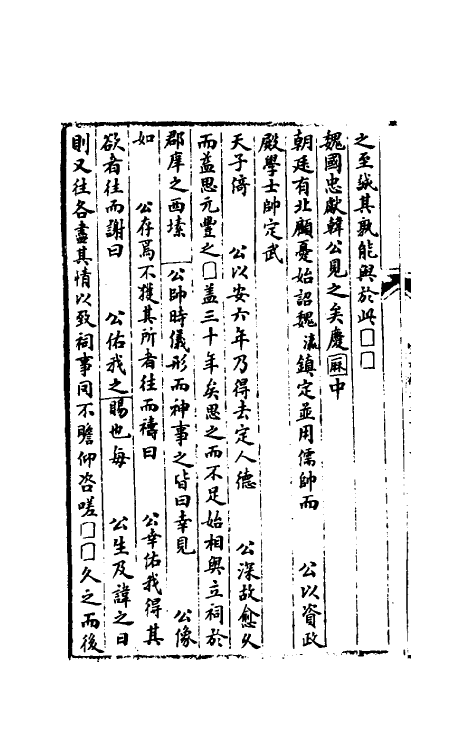 之至誠其孰能與於此□□
魏國忠獻韓公見之矣慶厤中
朝廷有北顧憂始詔魏瀛鎮定並用儒帥而　　公以資政
殿學士帥定武
天子倚　　公以安六年乃得去定人德　　公深故愈久
而益思元豐之□盖三十年矣思之而不足始相與立祠於
郡庠之西塾　公帥時儀形而神事之皆曰幸見　　公像
如　　公存焉不獲其所者往而禱曰　　公幸佑我得其
欲者往而謝曰　　公佑我之賜也每　　公生及諱之日
則又往各盡其情以致祠事罔不瞻仰咨嗟□□久之而後